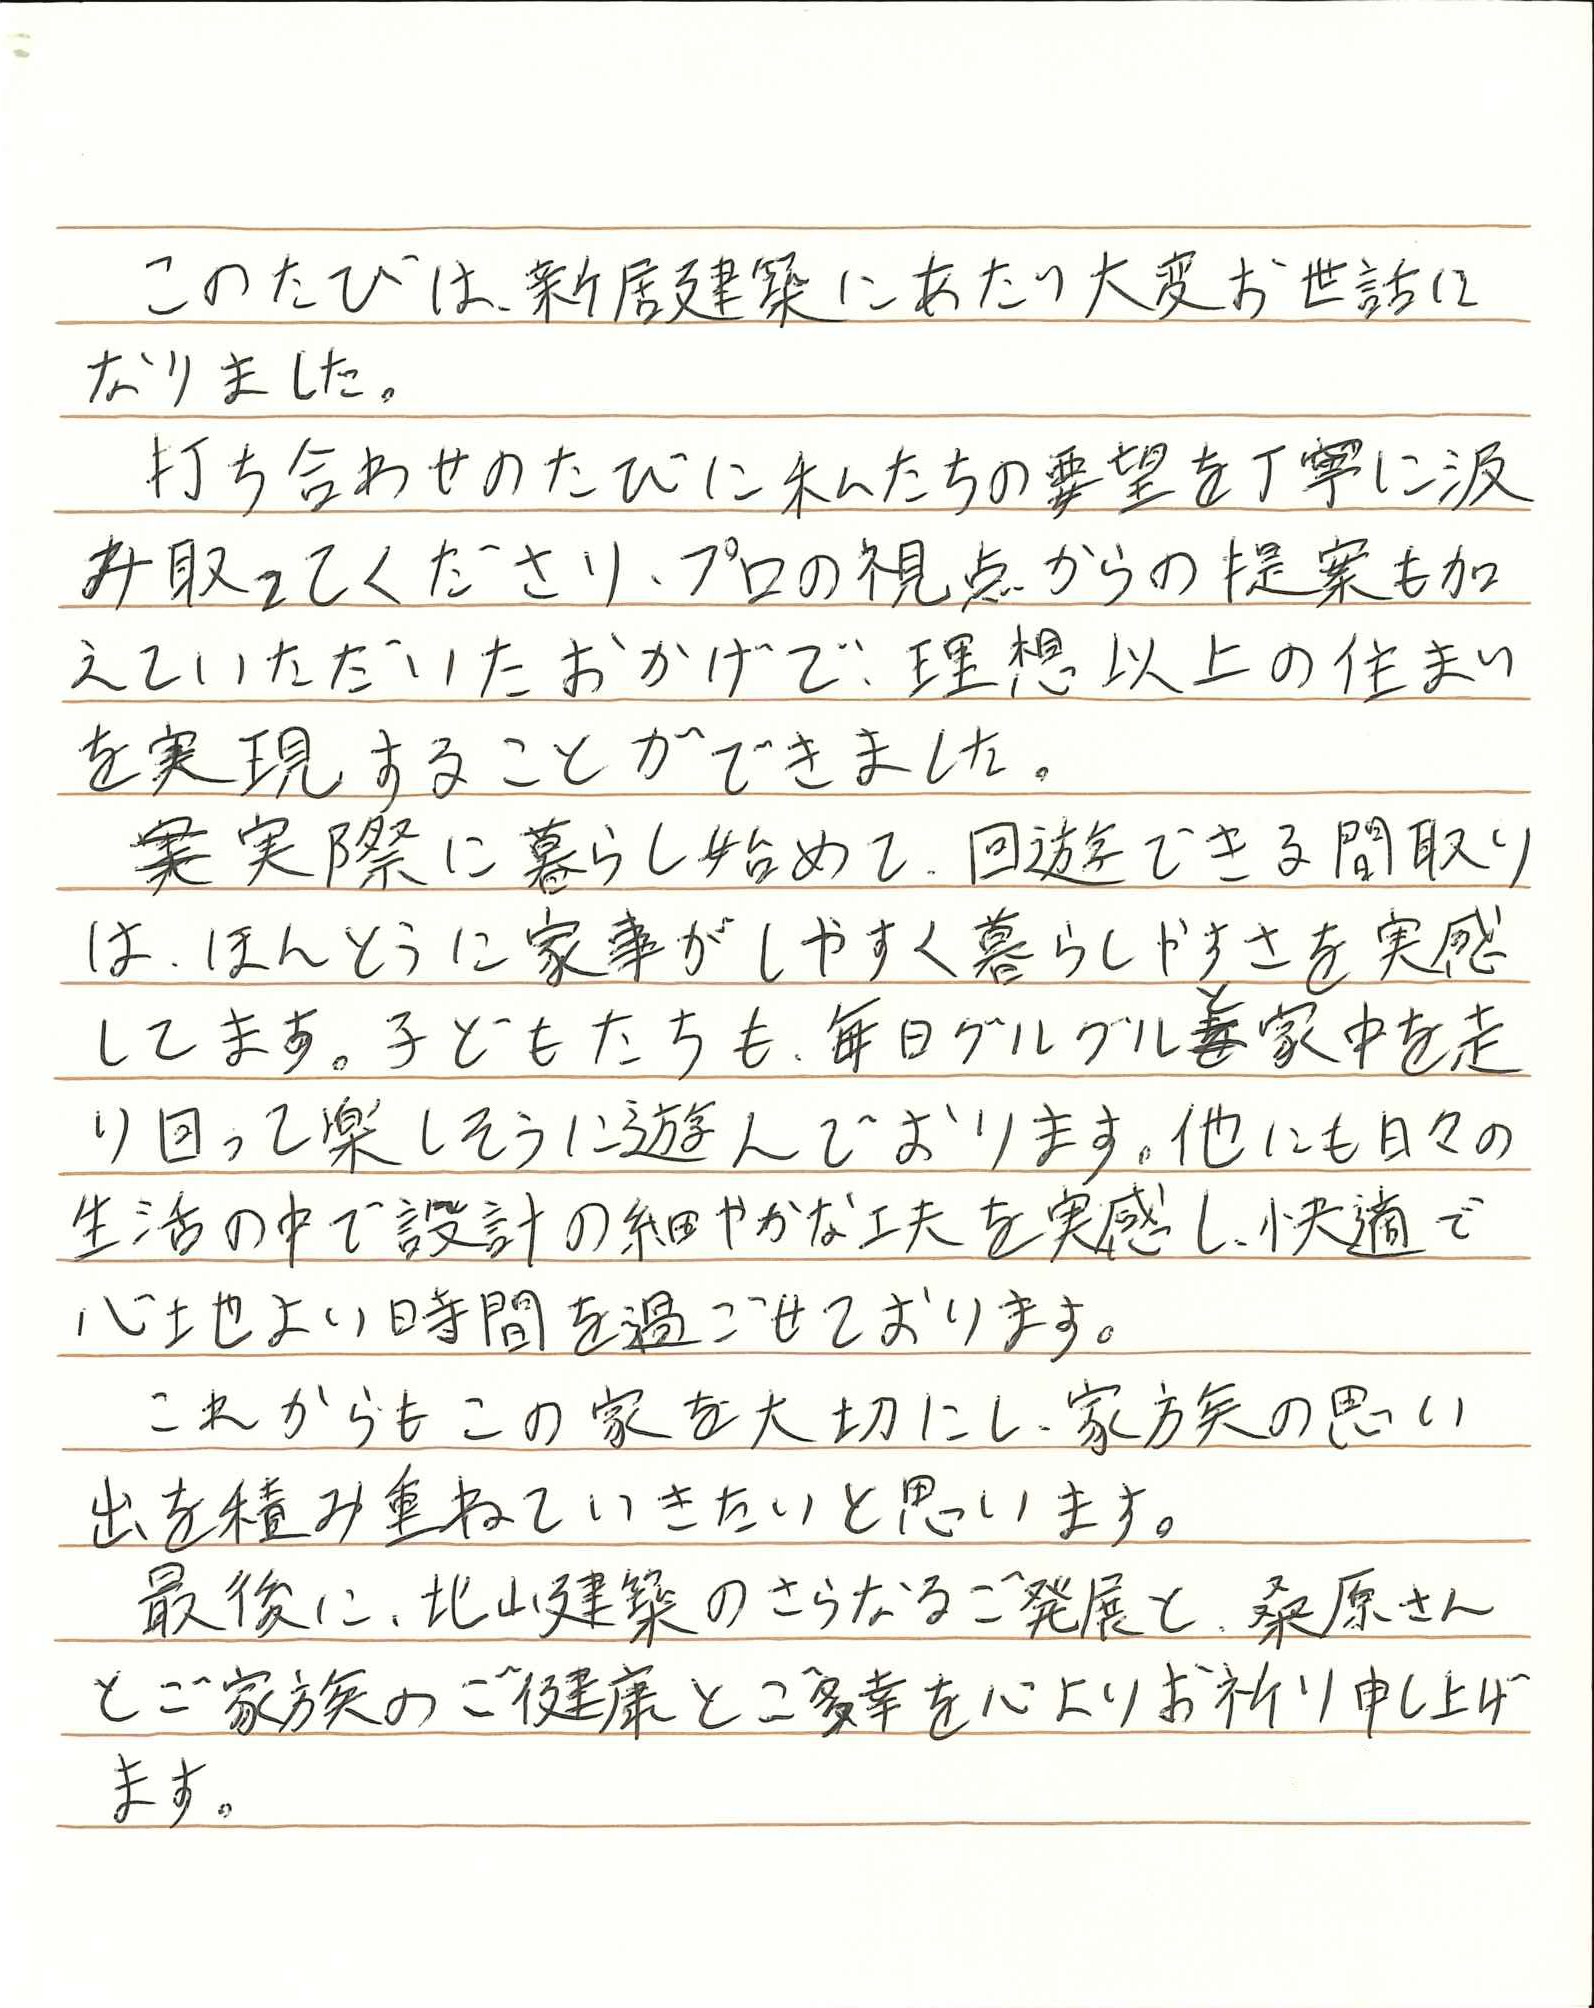 このたびは、新居建築にあたり大変お世話に
なりました。
打ち合わせのたびに私たちの要望を丁寧に汲
み取ってくださり、プロの視点からの提案も加
えていただいたおかげで、理想以上の住まい
を実現することができました。
実際に暮らし始めて、回遊できる間取り
は、ほんとうに家事がしやすく暮らしやすさを実感
してます。子どもたちも、毎日グルグルと家中を走
り回って楽しそうに遊んでおります。他にも日々の
生活の中で設計の細やかな工夫を実感し、快適で
心地よい時間を過ごせております。
これからもこの家を大切にし、家族の思い
出を積み重ねていきたいと思います。
最後に、北山建築のさらなるご発展と、桑原さん
とご家族のご健康とご多幸を心よりお祈り申し上げ
ます。